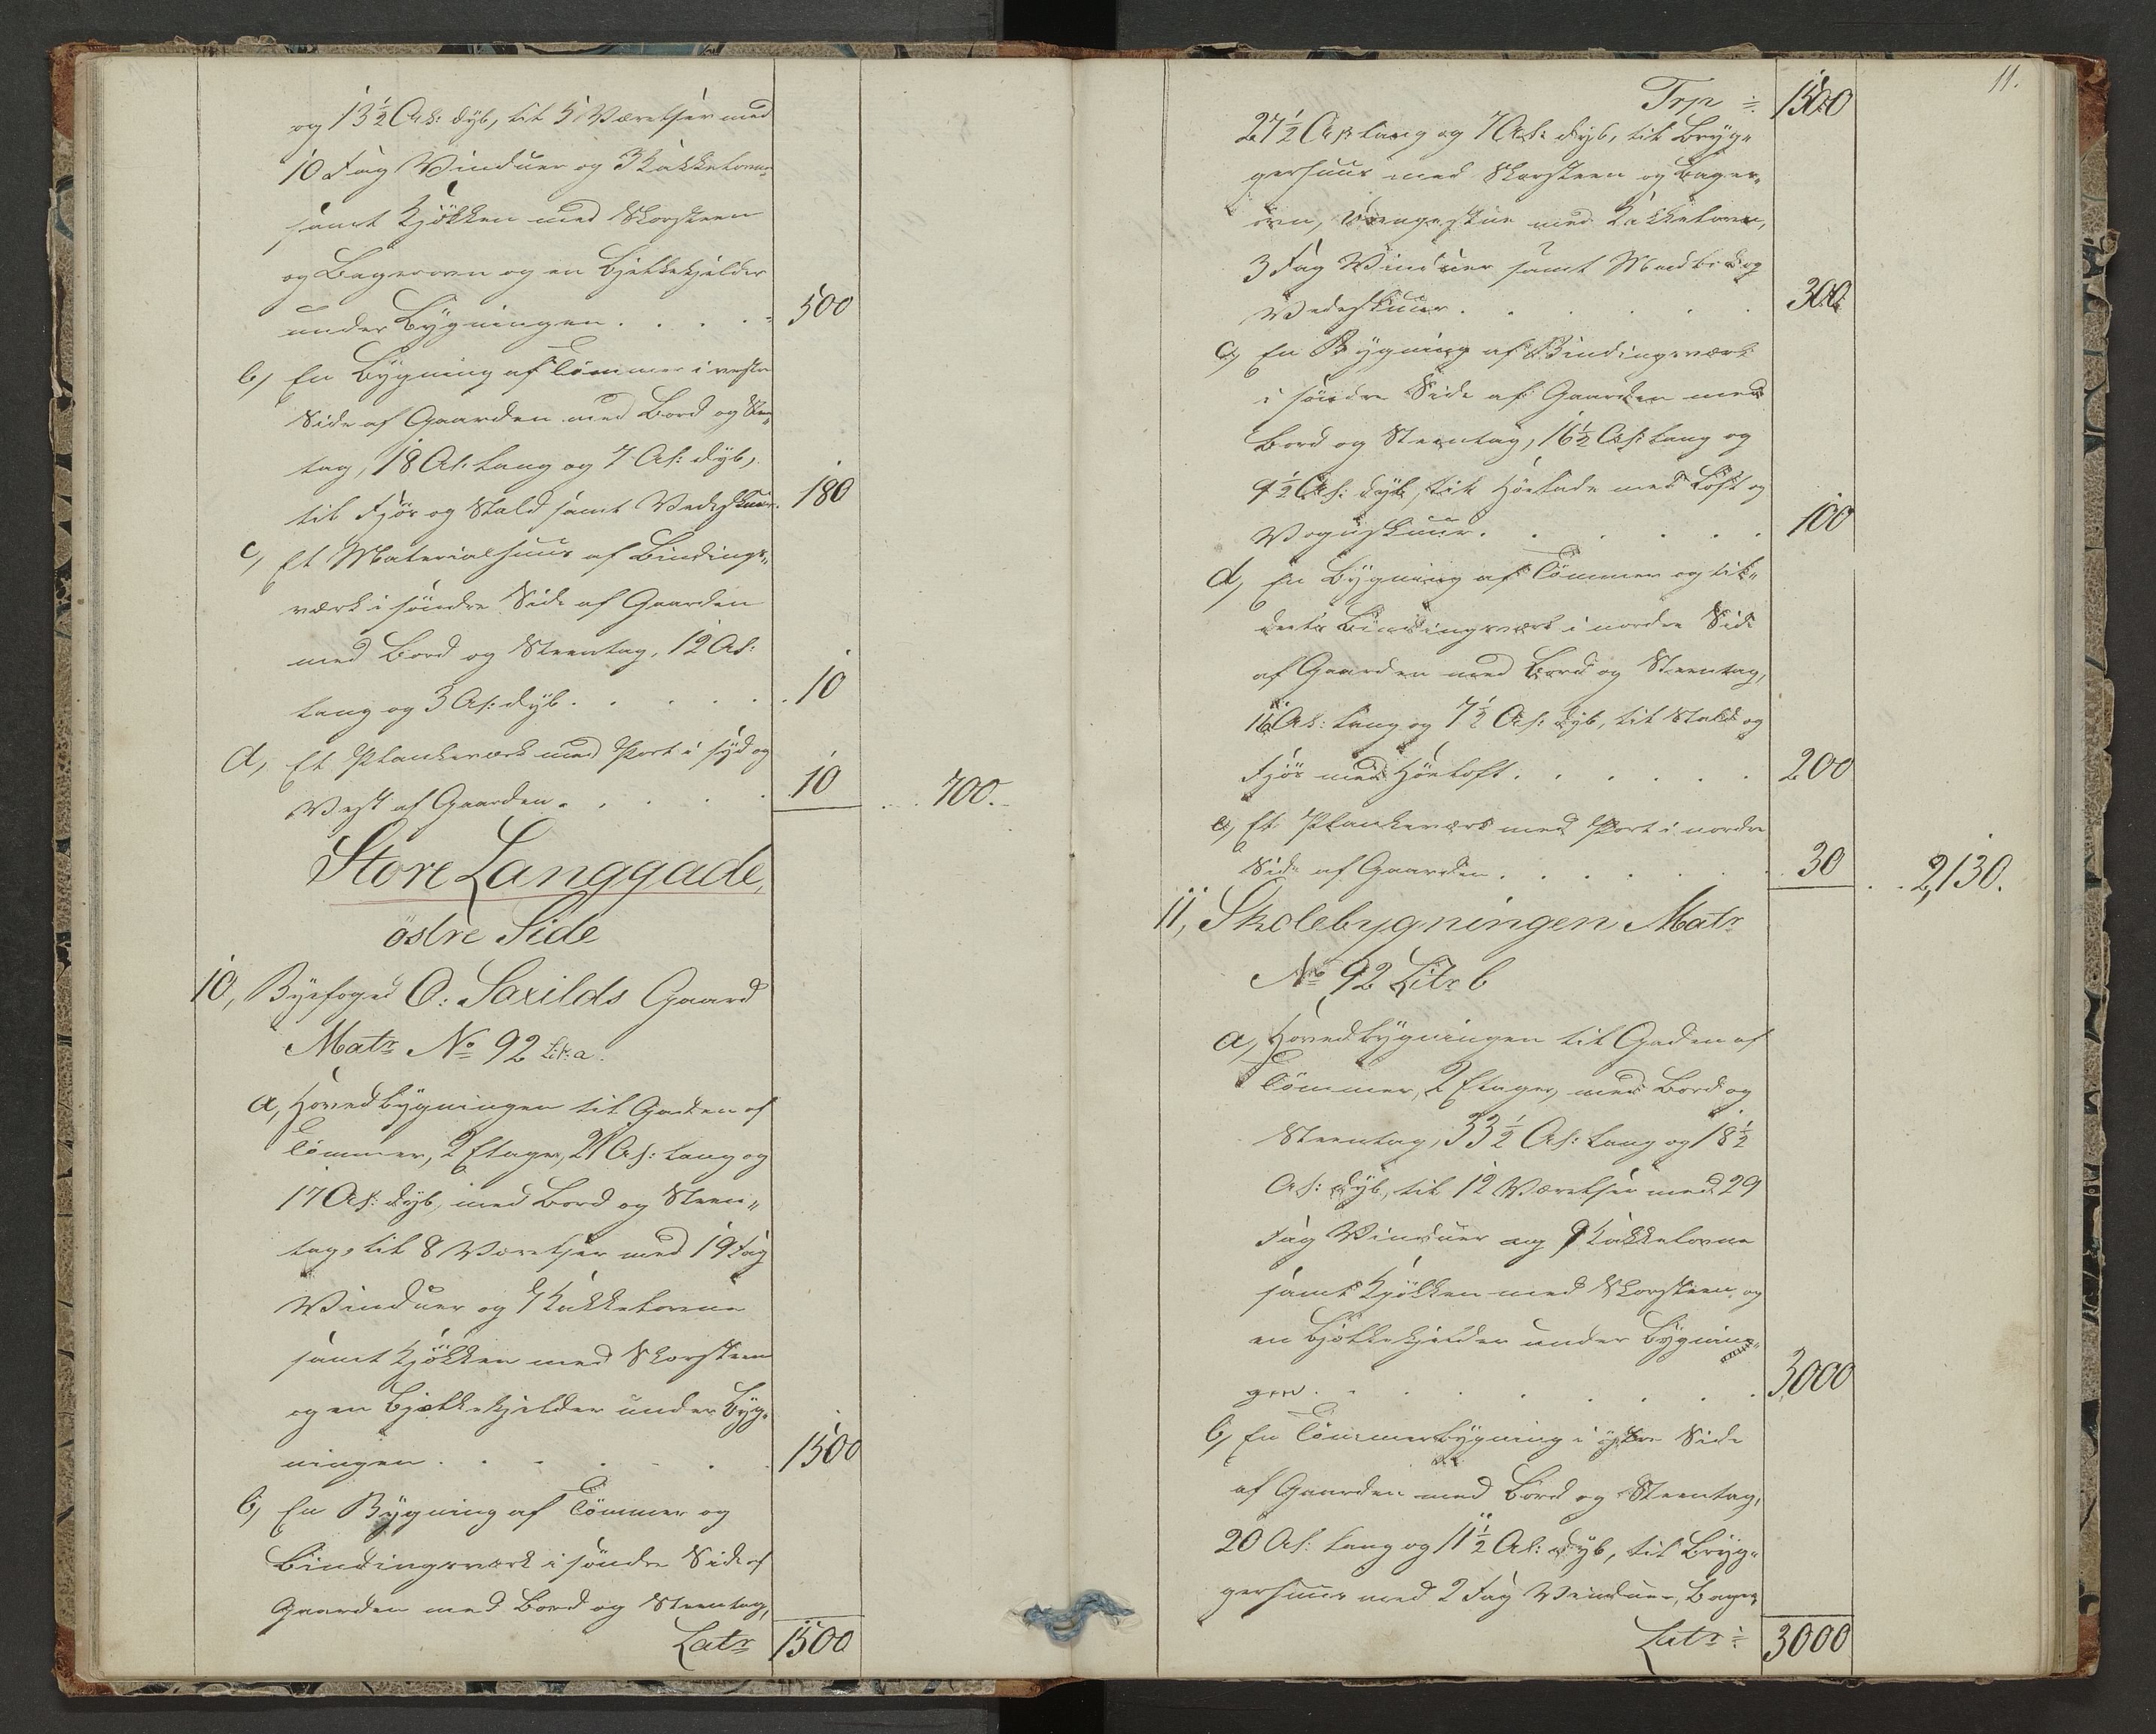 og 13½ Al: dyb, til 5 Værelser med
10 Fag Vinduer og 3 Kakkelovne
samt Kjökken med Skorsteen
og Bagerovn og en Bjelkekjelder
under Bygningen . . . . 500
b, En Bygning af Tömmer i vestre
Side af Gaarden med Bord og Steen„
tag, 18 Al: lang og 7 Al: dyb,
til Fjös og Stald samt Vedeskuur. 180
c, Et Materialhuus af Bindings„
værk i söndre Side af Gaarden
med Bord og Steentag, 12 Al:
lang og 3 Al: dyb. . . . . . 10
d, Et Plankeværk med Port i Syd og
Vest af Gaarden. . . . . 10 . . 700.
Store Langgade,
östre Side
10, Byefoged O: Saxilds Gaard
Matr No 92 Litr a.
a, Hovedbygningen til Gaden af
Tömmer, 2 Etager, 21 Al: lang og
17 Al: dyb, med Bord og Steen„
tag, til 8 Værelser med 19 Fag
Vinduer og 7 Kakkelovne
samt Kjökken med Skorsteen
og en Bjelkekjelder under Byg„
ningen . . . . . . 1500
b, En Bygning af Tömmer og
Bindingsværk i söndre Side af
Gaarden med Bord og Steentag,
Latr 1500
11.
Trp ÷ 1500
27½ Al: lang og 7 Al: dyb, til Bryg„
gerhuus med Skorsteen og Bager„
ovn, Drengestue med Kakkelovn,
3 Fag Vinduer samt Madbod og
Vedeskuur . . . . . . 300
c, En Bygning af Bindingsværk
i söndre Side af Gaarden med
Bord og Steentag, 16½ Al: lang og
9½ Al: dyb, til Höelade med Loft og
Vognskuur . . . . . . 100
d, En Bygning af Tömmer og til„
deels Bindingsværk i nordre Side
af Gaarden med Bord og Steentag,
16 Al: lang og 7½ Al: dyb, til Stald og
Fjös med Höeloft . . . . . . 200
e, Et Plankeværk med Port i nordre
Side af Gaarden . . . . . . 30 . . 2,130.
11, Skolebygningen Matr
No 92 Litr b
a, Hovedbygningen til Gaden af
Tömmer, 2 Etager, med Bord og
Steentag, 33½ Al: lang og 18½
Al: dyb, til 12 Værelser med 29
Fag Vinduer og 9 Kakkelovne
samt Kjökken med Skorsteen og
en Bjelkekjelder under Bygnin„
gen . . . . . . . 3000
b, En Tömmerbygning i östre Side
af Gaarden med Bord og Steentag,
20 Al: lang og 11½ Al: dyb, til Bryg„
gerhuus med 2 Fag Vinduer, Bager
Latr ÷ 3000